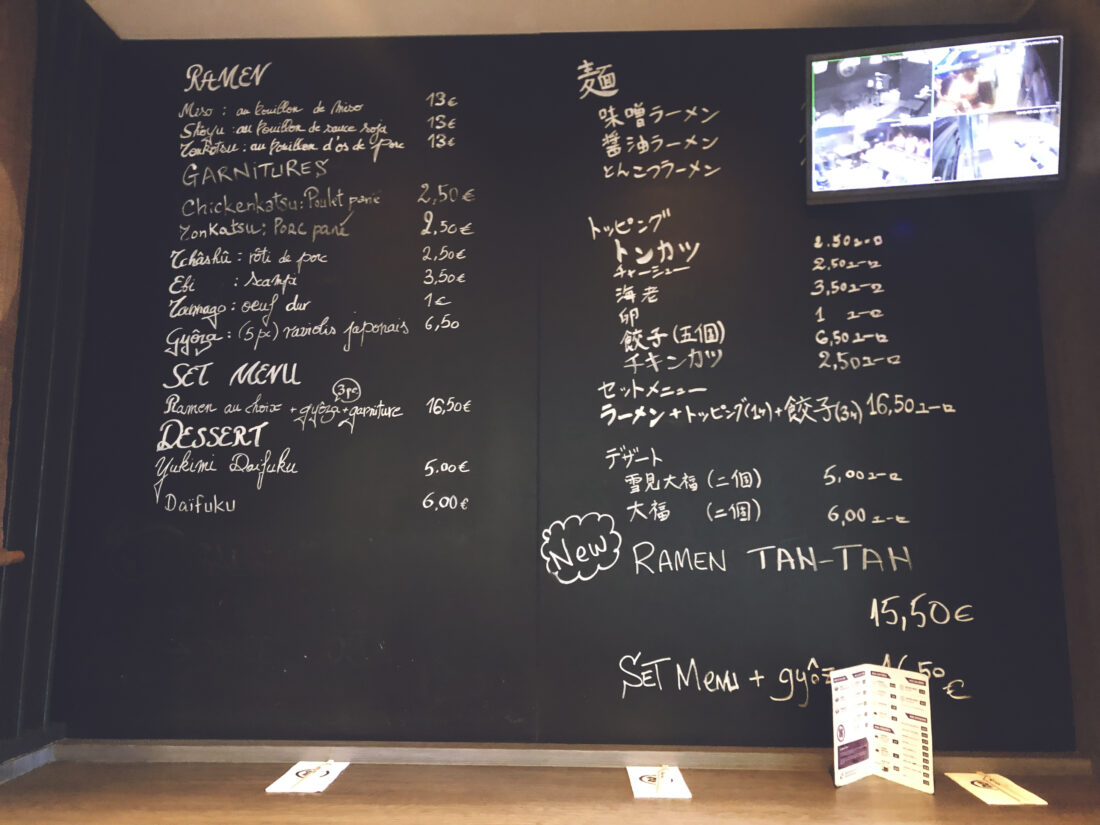 RAMEN
Miso : au bouillon de miso 13€
Shoyu : au bouillon de sauce soja 13€
Tonkotsu : au bouillon d'os de porc 13€
GARNITURES
Chickenkatsu : Poulet pané 2,50€
Tonkatsu : Porc pané 2,50€
Tchâshû : rôti de porc 2,50€
Ebi : scampi 3,50€
Tamago : oeuf dur 1€
Gyôza : (5 pc) raviolis japonais 6,50
SET MENU
3pc
Ramen au choix + gyôza + garniture 16,50€
DESSERT
Yukimi Daifuku 5,00€
Daïfuku 6,00€
麺
味噌ラーメン
醤油ラーメン
とんこつラーメン
トッピング
トンカツ 2.50ユーロ
チャーシュー 2,50ユーロ
海老 3,50ユーロ
卵 1 ユーロ
餃子(五個) 6,50ユーロ
チキンカツ 2,50ユーロ
セットメニュー
ラーメン+トッピング(1ヶ)+餃子(3ヶ) 16,50ユーロ
デザート
雪見大福(二個) 5,00ユーロ
大福 (二個) 6,00ユーロ
New RAMEN TAN-TAN
15,50€
SET MENU + gyôz 16,50€